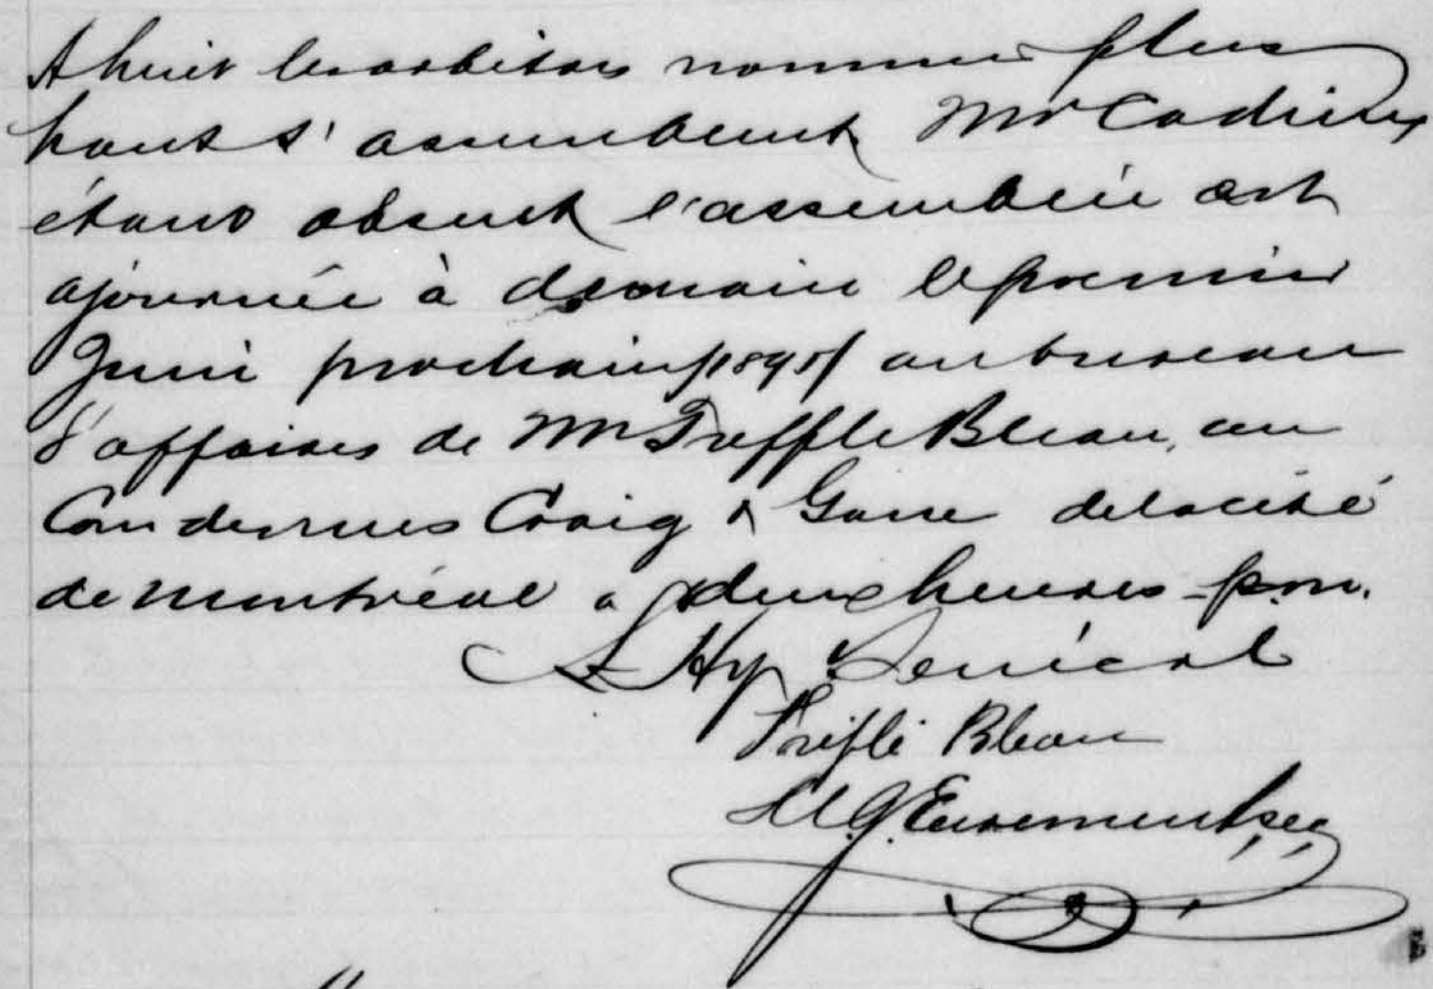 A huit les arbitres nommés plus
haut s'assemblent Mr Cadieux
étant absent l'assemblée est
ajournée à demain le premier
Juin prochain au bureau
d'affaires de Mr Treffle Bleau, au
Coin des rues Craig & Gain de la cité
de Montréal a deux heures p.m.
Hy Senécal
Trefflé Bleau